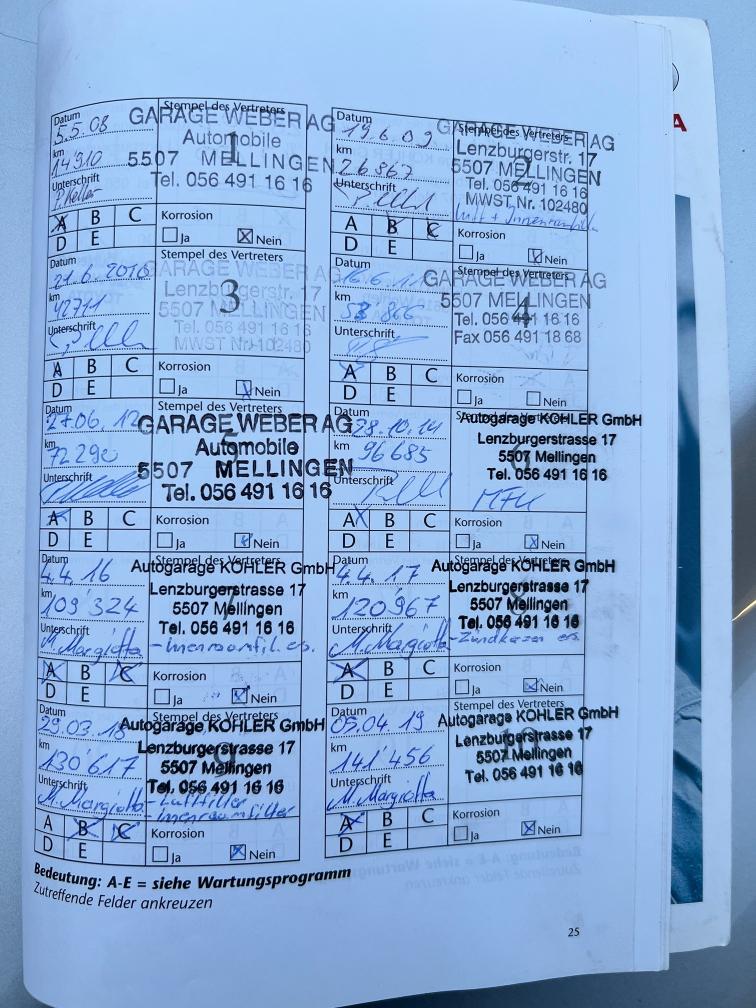 Datum
5.5.08
km
14910
Unterschrift
P. Keller
Stempel des Vertreters
GARAGE WEBER AG
Automobile
1
5507 MELLINGEN
Tel. 056 491 16 16
A B C
D E
Korrosion
Ja Nein
Datum
19.6.09
km
26867
Unterschrift
Stempel des Vertreters
GARAGE WEBER AG
Lenzburgerstr. 17
2
5507 MELLINGEN
Tel. 056 491 16 16
MWST Nr. 102480
A B C
D E
Korrosion
Ja Nein
Datum
21.6.2010
km
42711
Unterschrift
Stempel des Vertreters
GARAGE WEBER AG
Lenzburgerstr. 17
3
5507 MELLINGEN
Tel. 056 491 16 16
MWST Nr. 102480
A B C
D E
Korrosion
Ja Nein
Datum
16.6.11
km
Unterschrift
Stempel des Vertreters
GARAGE WEBER AG
5507 MELLINGEN
4
Tel. 056 491 16 16
Fax 056 491 18 68
A B C
D E
Korrosion
Ja Nein
Datum
27.06.12
km
72290
Unterschrift
Stempel des Vertreters
GARAGE WEBER AG
Automobile
5
5507 MELLINGEN
Tel. 056 491 16 16
A B C
D E
Korrosion
Ja Nein
Datum
28.10.14
km
96685
Unterschrift
Stempel des Vertreters
Autogarage KOHLER GmbH
Lenzburgerstrasse 17
5507 Mellingen
6
Tel. 056 491 16 16
MFK
A B C
D E
Korrosion
Ja Nein
Datum
4.4.16
km
109'324
Unterschrift
M. Margiotta
Stempel des Vertreters
Autogarage KOHLER GmbH
Lenzburgerstrasse 17
7
5507 Mellingen
Tel. 056 491 16 16
- Innenraumfil. es.
A B C
D E
Korrosion
Ja Nein
Datum
4.4.17
km
120'967
Unterschrift
M. Margiotta
Stempel des Vertreters
Autogarage KOHLER GmbH
Lenzburgerstrasse 17
8
5507 Mellingen
Tel. 056 491 16 16
- Zündkezen es.
A B C
D E
Korrosion
Ja Nein
Datum
29.03.18
km
130'617
Unterschrift
M. Margiotta
Stempel des Vertreters
Autogarage KOHLER GmbH
Lenzburgerstrasse 17
9
5507 Mellingen
Tel. 056 491 16 16
- Luftfilter
- Innenraumfilter
A B C
D E
Korrosion
Ja Nein
Datum
05.04.19
km
141'456
Unterschrift
M. Margiotta
Stempel des Vertreters
Autogarage KOHLER GmbH
Lenzburgerstrasse 17
5507 Mellingen
Tel. 056 491 16 16
A B C
D E
Korrosion
Ja Nein
Bedeutung: A-E = siehe Wartungsprogramm
Zutreffende Felder ankreuzen
25
A